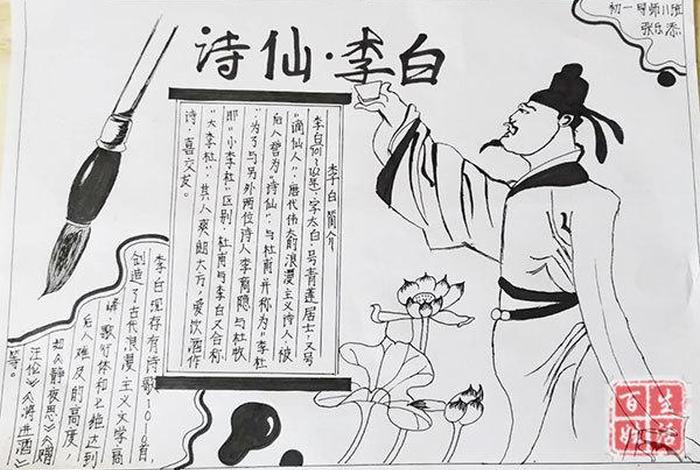 诗仙·李白
初一导师八班
张乐添
李白简介
李白(701~762年),字太白,号青莲居士,又号
“谪仙人”,唐代伟大的浪漫主义诗人,被
后人誉为“诗仙”,与杜甫并称为“李杜
”为了与另外两位诗人李商隐与杜牧
即“小李杜”区别,杜甫与李白又合称
“大李杜”,其人爽朗大方,爱饮酒作
诗,喜交友。
李白现存有诗歌1010首,
创造了古代浪漫主义文学高
峰,歌行体和七绝达到
后人难及的高度,
如《静夜思》《赠
汪伦》《将进酒》
等。
生活
百